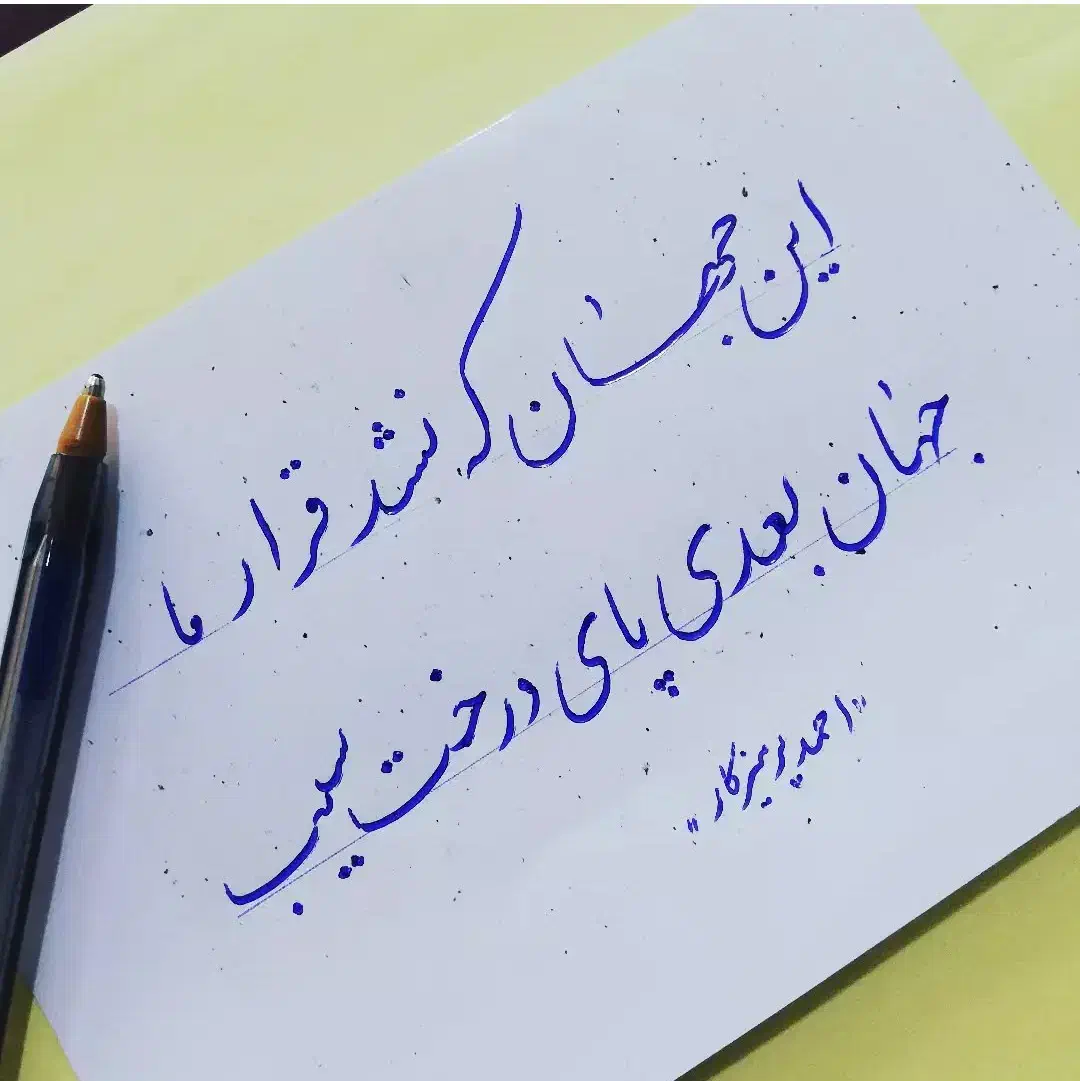 این جهان که نشد قرار ما
جهان بعدی پای درخت سیب
"احمد پرهیزکار"